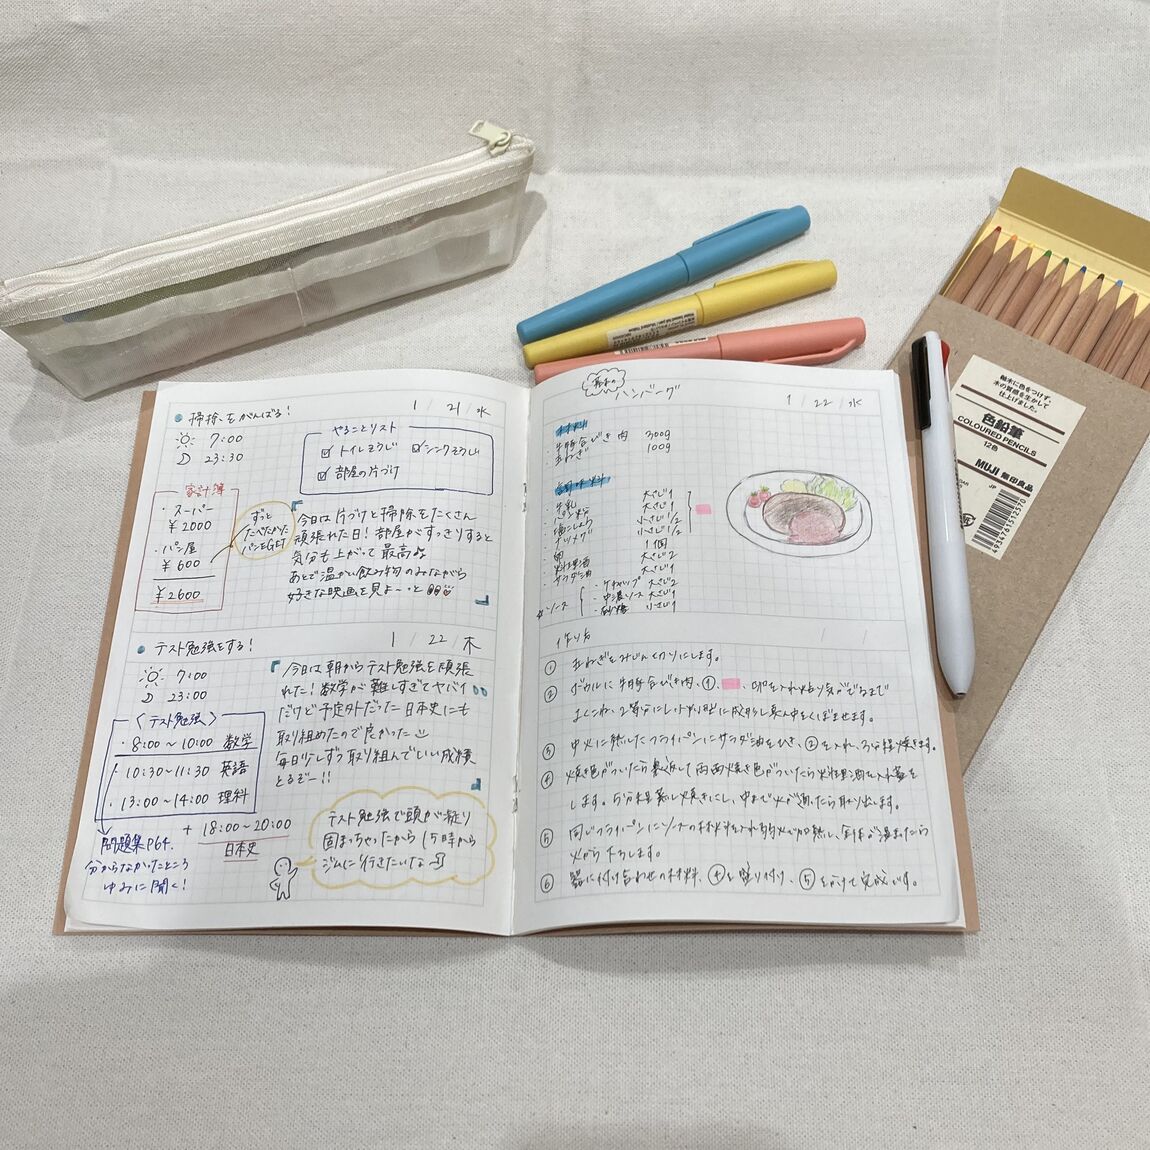 掃除をがんばる! 1/21/水
7:00
23:30
やることリスト
トイレそうじ シンクそうじ
部屋の片づけ
家計簿
・スーパー
¥2000
・パン屋
¥600
¥2600
ずっと
たべたかった
パンをGET
今日は片づけと掃除をたくさん
頑張れた日!部屋がすっきりすると
気分も上がって最高♪
あとで温かい飲み物のみながら
好きな映画を見よ〜っと
テスト勉強をする! 1/22/木
7:00
23:00
〈テスト勉強〉
・8:00〜10:00 数学
・10:30〜11:30 英語
・13:00〜14:00 理科
+ 18:00〜20:00
日本史
問題集P64.
分からなかったところ
ゆみに聞く!
今日は朝からテスト勉強を頑張
れた!数学が難しすぎてヤバイ
だけど予定外だった日本史にも
取り組めたので良かった
毎日少しずつ取り組んでいい成績
とるぞー!!
テスト勉強で頭が凝り
固まっちゃったから15時から
ジムに行きたいな
基本の
ハンバーグ 1/22/水
材料
・牛豚合びき肉 300g
・玉ねぎ 100g
調味料
・牛乳 大さじ1
・パン粉 大さじ1
・塩こしょう 小さじ1/2
・ナツメグ 小さじ1/2
・卵 1個
・料理酒 大さじ2
・サラダ油 大さじ1
・ケチャップ 大さじ2
ソース ・中濃ソース 大さじ1
・砂糖 小さじ1
作り方
① 玉ねぎをみじん切りにします。
② ボウルに牛豚合びき肉、①、、卵を入れ粘り気がでるまで
まぜこね、2等分にし小判型に成形し真ん中をくぼませます。
③ 中火に熱したフライパンにサラダ油をひき、②を入れ、3分程焼きます。
④ 焼き色がついたら裏返して両面焼き色がついたら料理酒を入れ蓋を
します。5分程蒸し焼きにし、中まで火が通ったら取り出します。
⑤ 同じフライパンにソースの材料を入れ弱火で加熱し、全体が温まったら
火から下ろします。
⑥ 器に付け合わせの材料、④を盛り付け、⑤をかけて完成です。
軸木に色をつけず、
木の質感を生かして
仕上げました。
色鉛筆
COLOURED PENCILS
12色
MUJI 無印良品
4934761512570